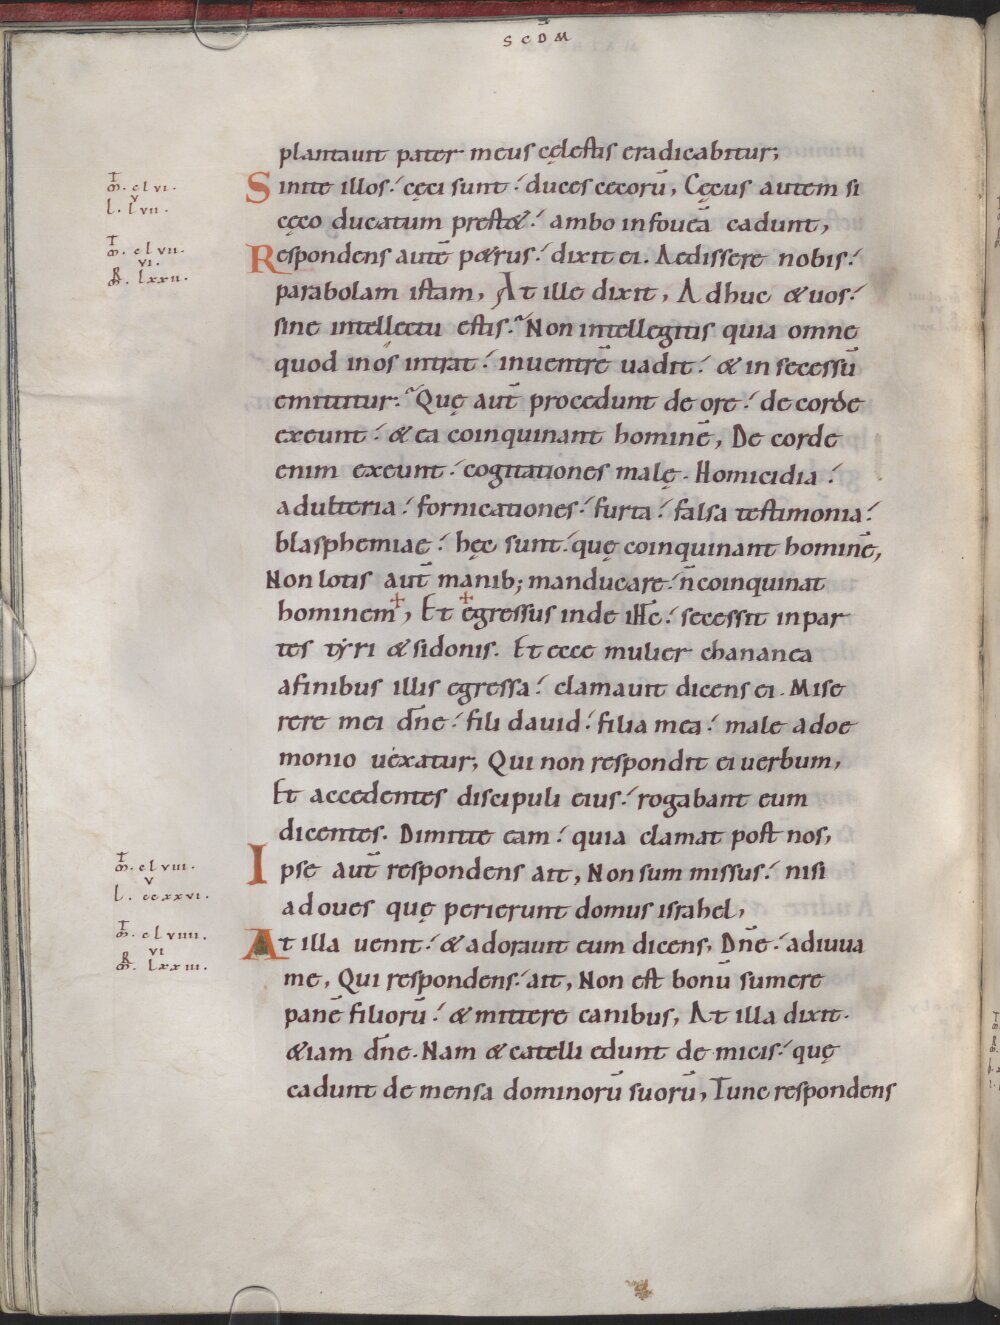 SCDM̄
plantauit pater meus cęlestis eradicabitur;
m̄. clvi.
v
l. lvii.
Sinite illos: cęci sunt: duces cecorū, Cęcus autem si
cęco ducatum prest&: ambo in foueā cadunt,
m̄. clvii.
vi.
R
m̄. lxxii.
Respondens autē p&rus: dixit ei. Aedissere nobis:
parabolam istam, At ille dixit, Adhuc & uos:
sine intellectu estis: Non intellegitis quia omne
quod in os intrat: in uentrē uadit: & in secessū
emittitur: Quę aut̄ procedunt de ore: de corde
exeunt: & ea coinquinant hominē, De corde
enim exeunt: cogitationes malę. Homicidia:
adulteria: fornicationes: furta: falsa testimonia:
blasphemiae: hęc sunt: quę coinquinant hominē,
Non lotis aut̄ manib; manducare: n̄ coinquinat
hominem, Et egressus inde ih̄c: secessit in par
tes tyri & sidonis. Et ecce mulier chananea
a finibus illis egressa: clamauit dicens ei. Mise
rere mei dn̄e: fili dauid: filia mea: male a doe
monio uexatur, Qui non respondit ei uerbum,
Et accedentes discipuli eius: rogabant eum
dicentes. Dimitte eam: quia clamat post nos,
m̄. clviii.
v
l. ccxxvi.
Ipse aut̄ respondens ait, Non sum missus: nisi
ad oues quę perierunt domus israhel,
m̄. clviiii.
vi
R
m̄. lxxiii.
At illa uenit: & adorauit eum dicens, Dn̄e: adiuua
me, Qui respondens: ait, Non est bonū sumere
panē filiorū: & mittere canibus, At illa dixit.
&iam dn̄e. Nam & catelli edunt de micis: quę
cadunt de mensa dominorū suorū, Tunc respondens